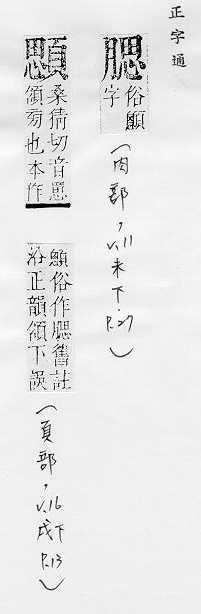 正字通
腮
俗顋
字
(肉部,v.11未下.P.27)
顋
桑猜切音
頷旁也本作
顋俗作腮舊註
沿正韻頷下誤
(頁部,v.16戌下P.13)